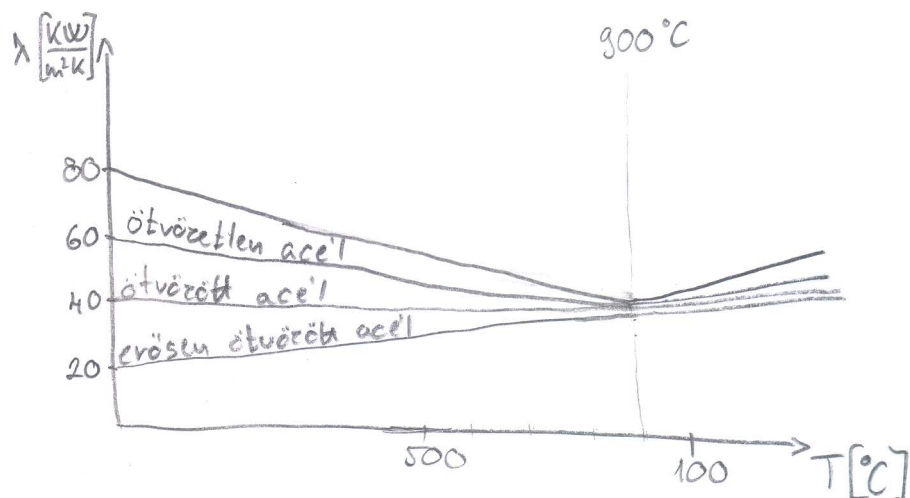 λ [KW/m²K]
900°C
80
60
40
20
ötvözetlen acél
ötvözött acél
erősen ötvözött acél
500
100
T[°C]